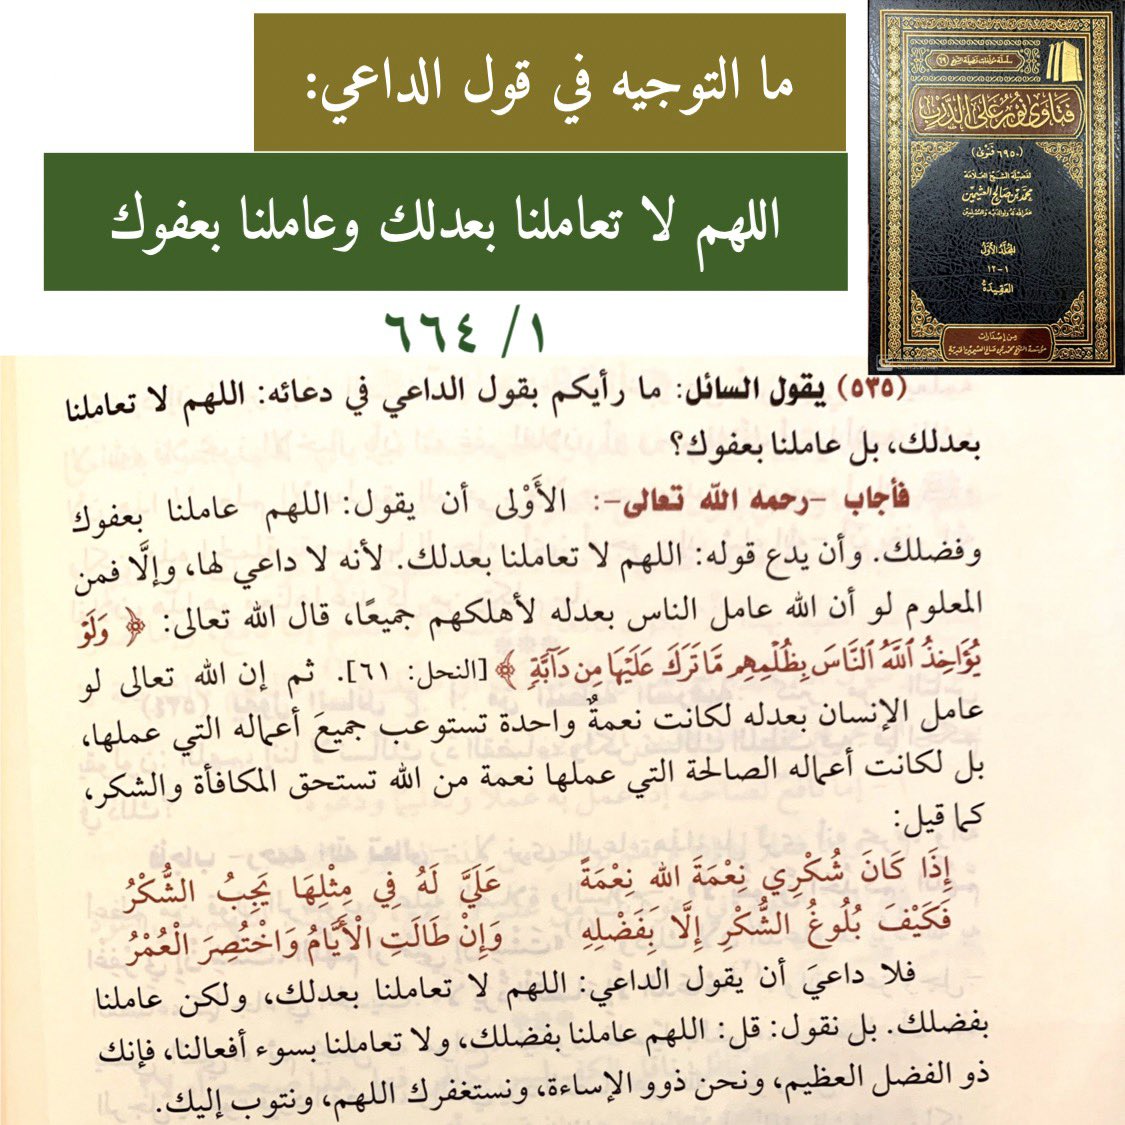 ما التوجيه في قول الداعي:
اللهم لا تعاملنا بعدلك وعاملنا بعفوك
١/ ٦٦٤
فتاوى نور على الدرب
(٦٩٥٠ فتوى)
لفضيلة الشيخ العلامة
محمد بن صالح العثيمين
غفر الله له ولوالديه وللمسلمين
المجلد الأول
١-١٢
العقيدة
من إصدارات
(٥٣٥) يقول السائل: ما رأيكم بقول الداعي في دعائه: اللهم لا تعاملنا
بعدلك، بل عاملنا بعفوك؟
فأجاب -رحمه الله تعالى-: الأَوْلى أن يقول: اللهم عاملنا بعفوك
وفضلك. وأن يدع قوله: اللهم لا تعاملنا بعدلك. لأنه لا داعي لها، وإلَّا فمن
المعلوم لو أن الله عامل الناس بعدله لأهلكهم جميعًا، قال الله تعالى: ﴿ وَلَوْ
يُؤَاخِذُ ٱللَّهُ ٱلنَّاسَ بِظُلْمِهِم مَّا تَرَكَ عَلَيْهَا مِن دَآبَّةٍ ﴾ [النحل: ٦١]. ثم إن الله تعالى لو
عامل الإنسان بعدله لكانت نعمةٌ واحدة تستوعب جميعَ أعماله التي عملها،
بل لكانت أعماله الصالحة التي عملها نعمة من الله تستحق المكافأة والشكر،
كما قيل:
إِذَا كَانَ شُكْرِي نِعْمَةَ الله نِعْمَةً عَلَيَّ لَهُ فِي مِثْلِهَا يَجِبُ الشُّكْرُ
فَكَيْفَ بُلُوغُ الشُّكْرِ إِلَّا بِفَضْلِهِ وَإِنْ طَالَتِ الْأَيَّامُ وَاخْتُصِرَ الْعُمْرُ
فلا داعيَ أن يقول الداعي: اللهم لا تعاملنا بعدلك، ولكن عاملنا
بفضلك. بل نقول: قل: اللهم عاملنا بفضلك، ولا تعاملنا بسوء أفعالنا، فإنك
ذو الفضل العظيم، ونحن ذوو الإساءة، ونستغفرك اللهم، ونتوب إليك.